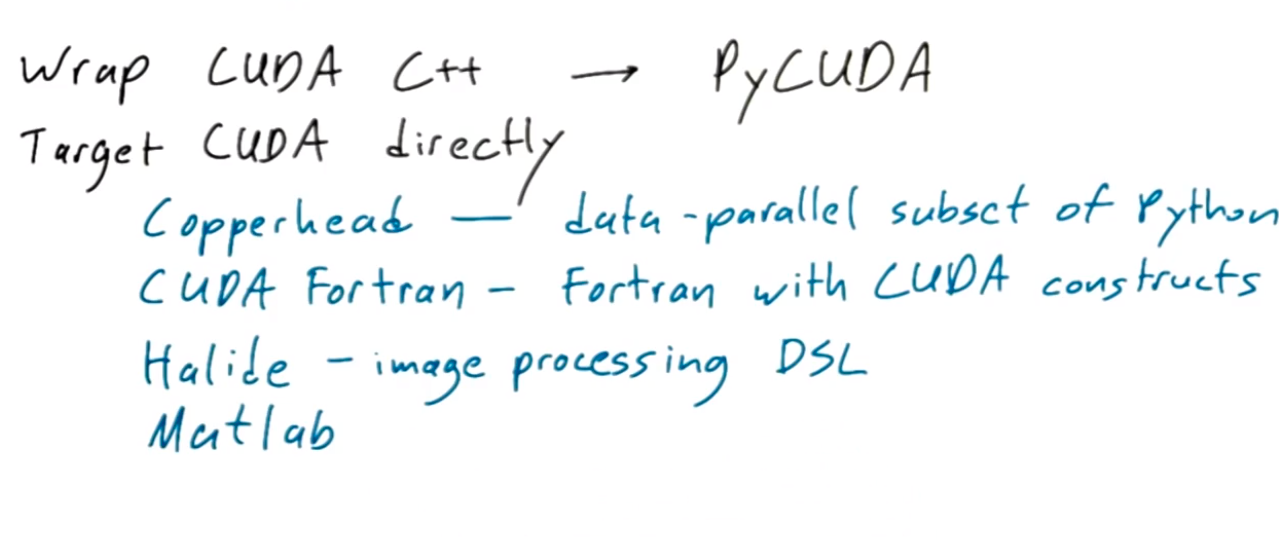 Wrap CUDA C++ → PyCUDA
Target CUDA directly
Copperhead — data-parallel subset of Python
CUDA Fortran - Fortran with CUDA constructs
Halide - image processing DSL
Matlab